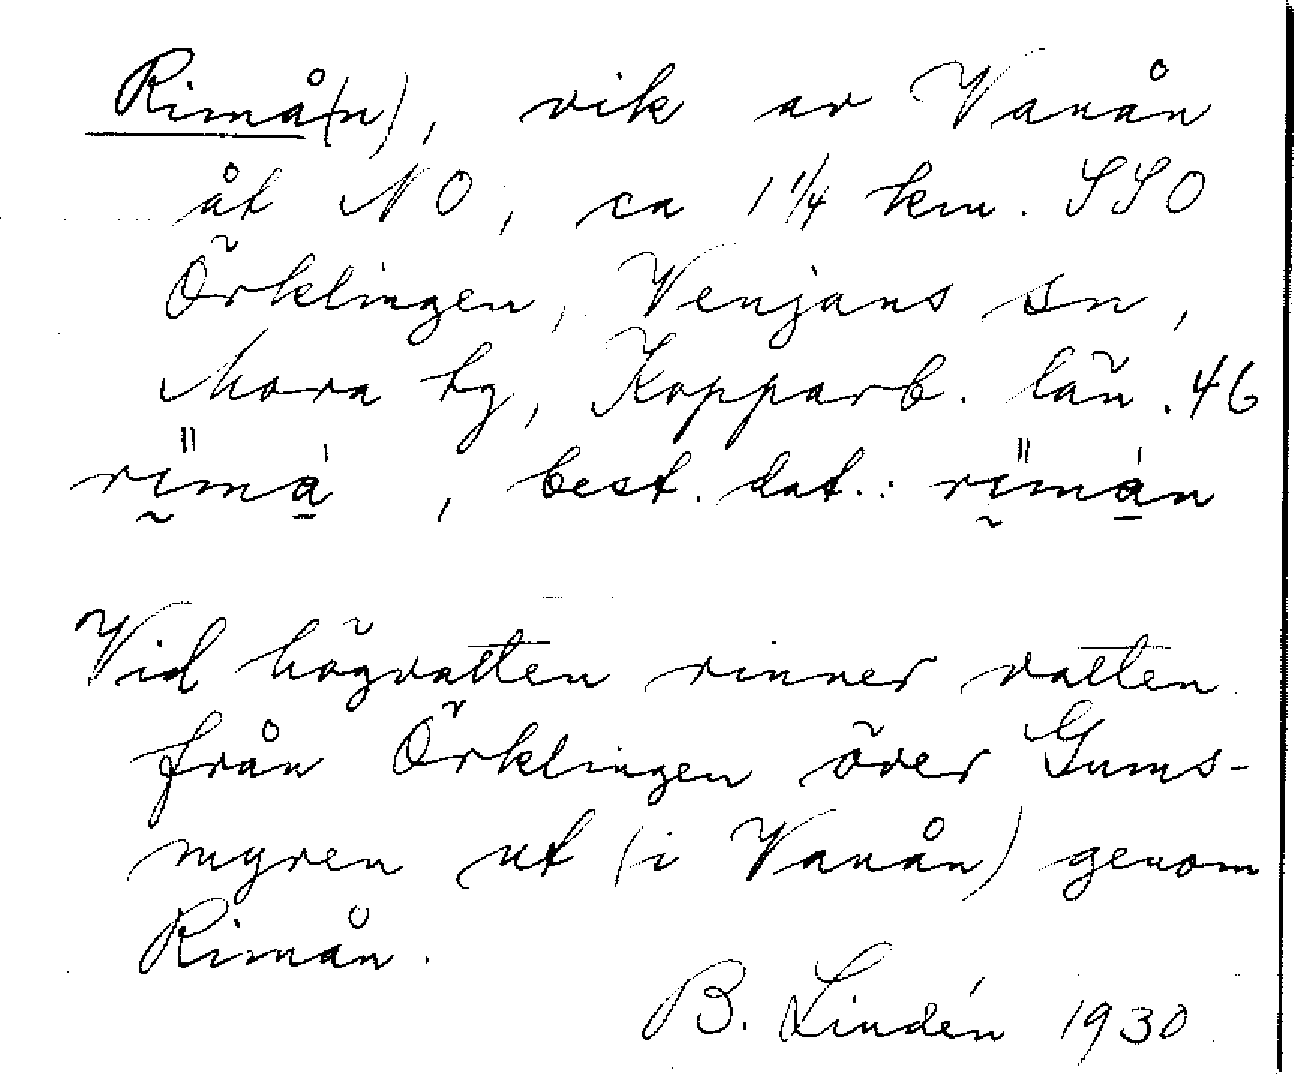 Rimå(n), vik av Vanån
åt NO, ca 1 1/4 km. SSO
Örklingen, Venjans sn,
Mora tg, Kopparb. län. 46
rima, best. dat.: riman
Vid högvatten rinner vatten
från Örklingen över Gums-
myren ut (i Vanån) genom
Rimån.
B. Lindén 1930